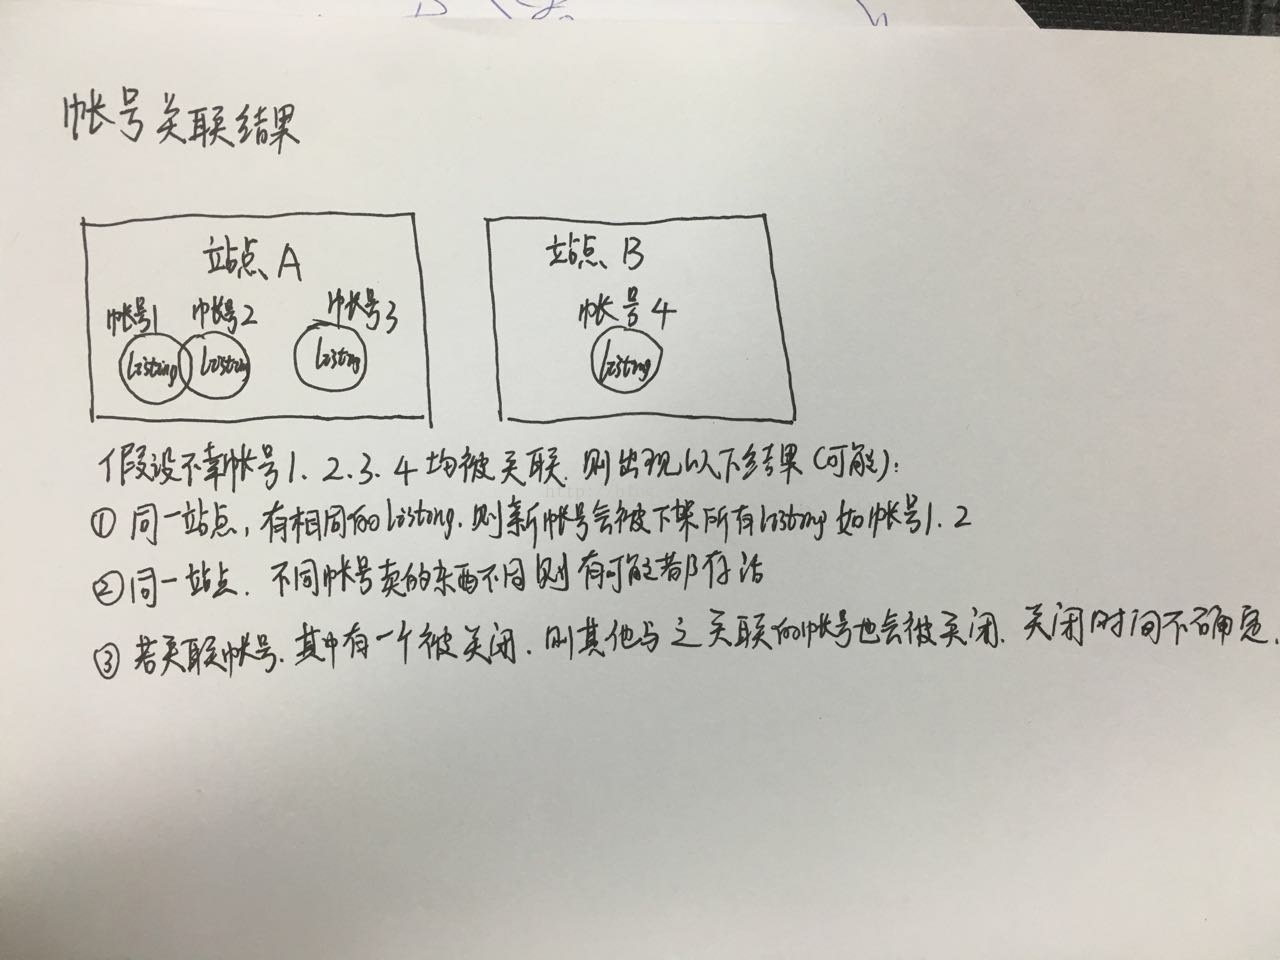 帐号关联结果
站点 A
站点 B
帐号1 帐号2 帐号3
帐号4
listing listing listing
listing
假设不幸帐号1.2.3.4均被关联.则出现以下结果(可能):
① 同一站点,有相同的listing.则新帐号会被下架所有listing如帐号1.2
② 同一站点.不同帐号卖的东西不同则有可能都存活
③ 若关联帐号.其中有一个被关闭.则其他与之关联的帐号也会被关闭.关闭时间不确定.